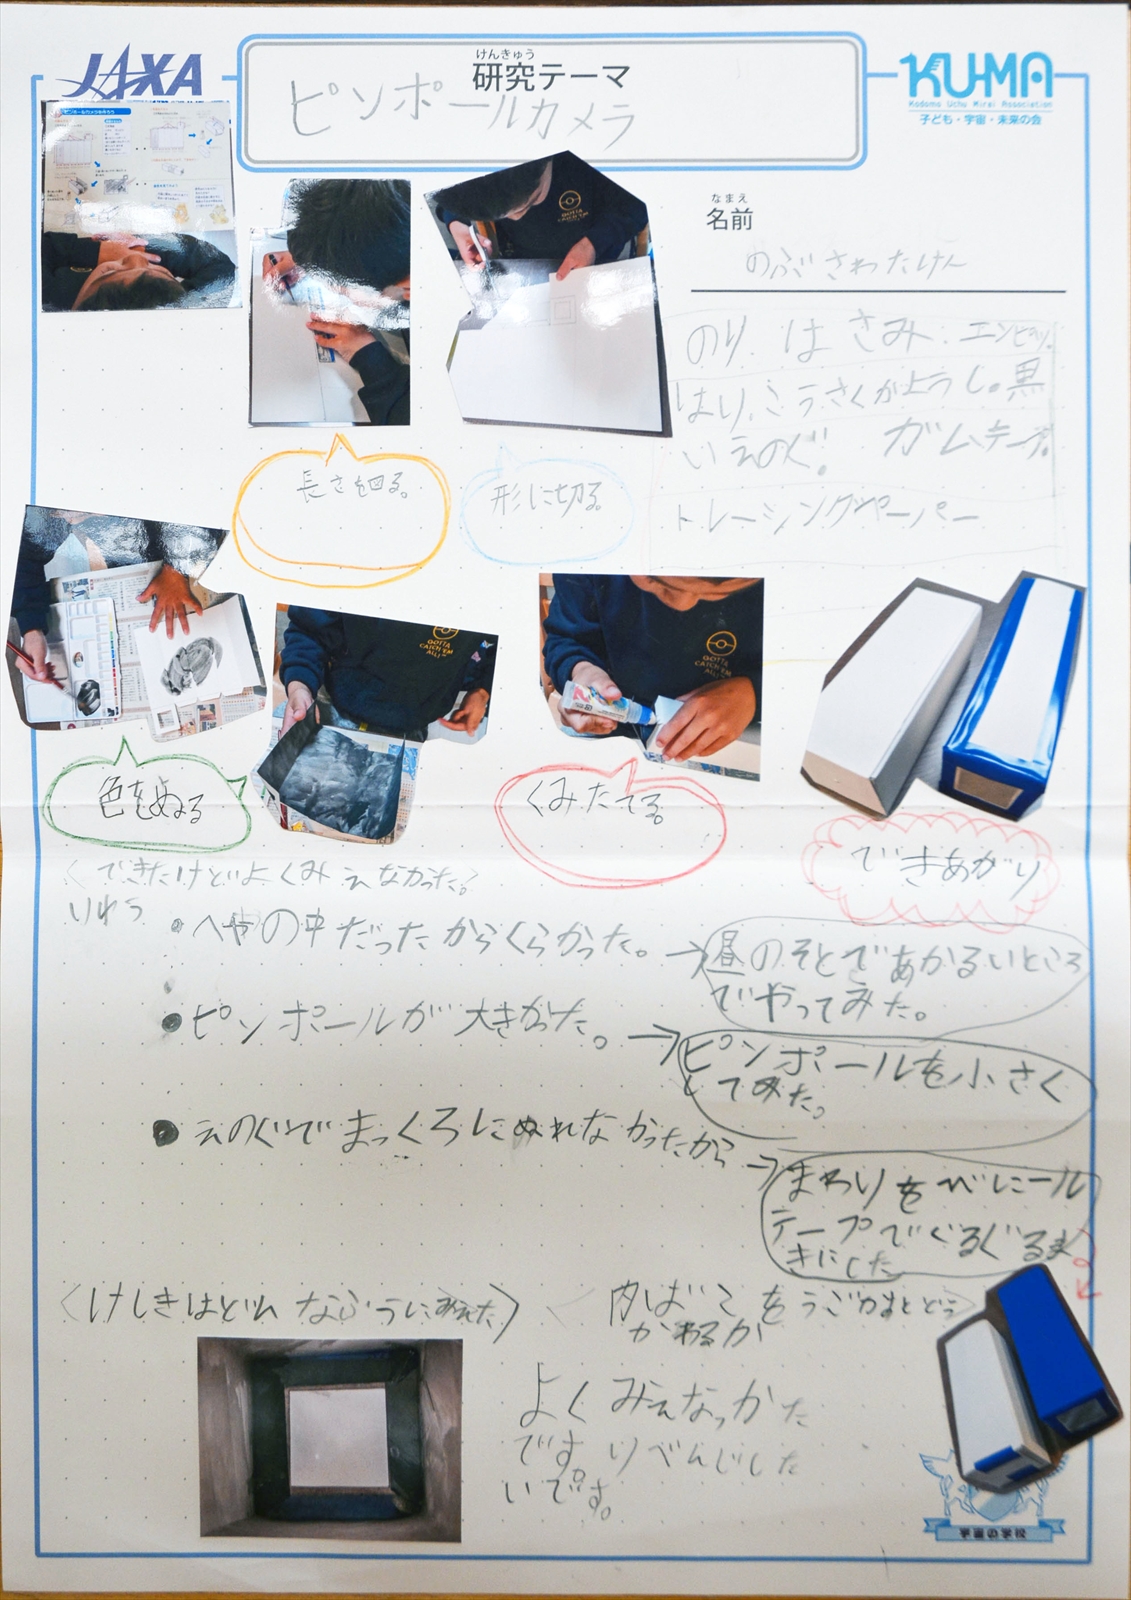 JAXA
けんきゅう
研究テーマ
ピンポールカメラ
KU-MA
Kodomo Uchu Mirai Association
子ども・宇宙・未来の会
なまえ
名前
のぶさわたけん
のり、はさみ、エンピツ、
はり、こうさくがようし。黒
いえのぐ。ガムテープ。
トレーシングペーパー
GOTTA
CATCH 'EM
ALL!
長さを図る。
形に切る。
GOTTA
CATCH 'EM
ALL!
GOTTA
CATCH 'EM
ALL!
色をぬる
くみたてる。
できあがり
〈できたけどよくみえなかった。〉
りゆう
・へやの中だったからくらかった。→昼のそとであかるいところ
でやってみた。
・ピンポールが大きかった。→ピンポールを小さく
してみた。
・えのぐでまっくろにぬれなかったから→まわりをべにール
テープでぐるぐるま
きにした
〈けしきはどんなふうにみえた〉
〈内ばこをうごかすとどう
かわるか
よくみえなっかた
です。りべんじした
いです。
宇宙の学校